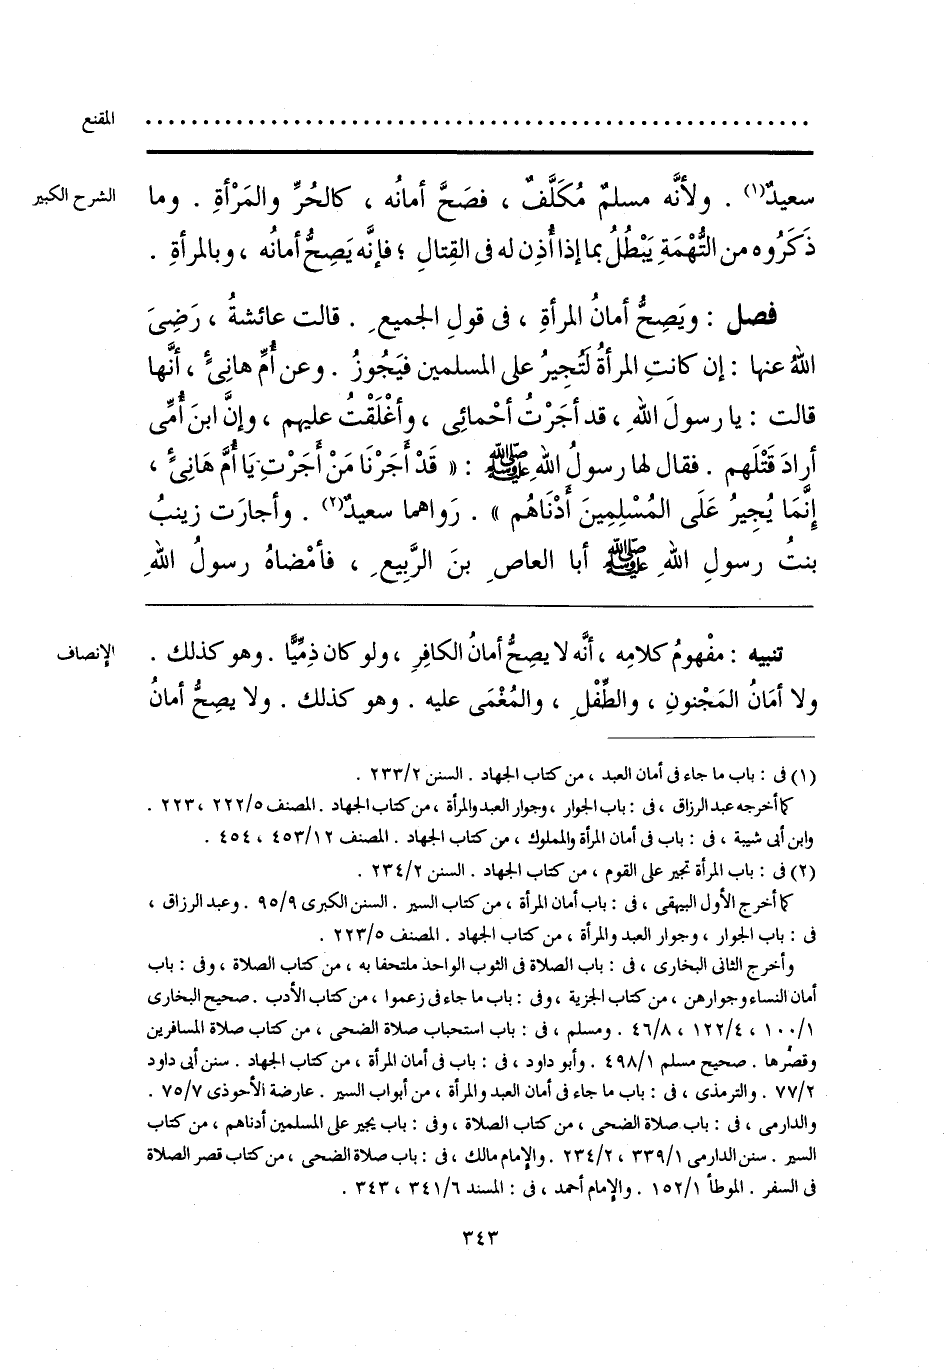 المقنع ............................................................
الشرح الكبير سعيدٌ(١) . ولأنَّه مسلمٌ مُكَلَّفٌ ، فصَحَّ أمانُه ، كالحُرِّ والمَرْأةِ . وما
ذَكَرُوه من التُّهْمَةِ يَبْطُلُ بما إذا أُذِن له فى القِتالِ ؛ فإنَّه يَصِحُّ أمانُه ، وبالمرأةِ .
فصل : ويَصِحُّ أمانُ المرأةِ ، فى قولِ الجميعِ . قالت عائشةُ ، رَضِىَ
اللهُ عنها : إن كانتِ المرأةُ لَتُجِيرُ على المسلمين فيَجُوزُ . وعن أُمِّ هانِىءٍ ، أنَّها
قالت : يا رسولَ اللهِ ، قد أجَرْتُ أحْمائِى ، وأغْلَقْتُ عليهم ، وإنَّ ابنَ أُمِّى
أرادَ قَتْلَهم . فقال لها رسولُ اللهِ ﷺ : « قَدْ أَجَرْنَا مَنْ أَجَرْتِ يَا أُمَّ هَانِىءٍ ،
إِنَّمَا يُجِيرُ عَلَى المُسْلِمِينَ أَدْنَاهُم » . رَواهما سعيدٌ(٢) . وأجارَت زينبُ
بنتُ رسولِ اللهِ ﷺ أبا العاصِ بنَ الرَّبِيعِ ، فأمْضاهُ رسولُ اللهِ
الإنصاف تنبيه : مفْهومُ كلامِه ، أنَّه لا يصِحُّ أمانُ الكافِرِ ، ولو كان ذِمِّيًّا . وهو كذلك .
ولا أمَانُ المَجْنونِ ، والطِّفْلِ ، والمُغْمَى عليه . وهو كذلك . ولا يصِحُّ أمانُ
(١) فى : باب ما جاء فى أمان العبد ، من كتاب الجهاد . السنن ٢٣٣/٢ .
كما أخرجه عبد الرزاق ، فى : باب الجوار ، وجوار العبد والمرأة ، من كتاب الجهاد . المصنف ٢٢٢/٥ ، ٢٢٣ .
وابن أبى شيبة ، فى : باب فى أمان المرأة والمملوك ، من كتاب الجهاد . المصنف ٤٥٣/١٢ ، ٤٥٤ .
(٢) فى : باب المرأة تجير على القوم ، من كتاب الجهاد . السنن ٢٣٤/٢ .
كما أخرج الأول البيهقى ، فى : باب أمان المرأة ، من كتاب السير . السنن الكبرى ٩٥/٩ . وعبد الرزاق ،
فى : باب الجوار ، وجوار العبد والمرأة ، من كتاب الجهاد . المصنف ٢٢٣/٥ .
وأخرج الثانى البخارى ، فى : باب الصلاة فى الثوب الواحد ملتحفا به ، من كتاب الصلاة ، وفى : باب
أمان النساء وجوارهن ، من كتاب الجزية ، وفى : باب ما جاء فى زعموا ، من كتاب الأدب . صحيح البخارى
١٠٠/١ ، ١٢٢/٤ ، ٤٦/٨ . ومسلم ، فى : باب استحباب صلاة الضحى ، من كتاب صلاة المسافرين
وقصرها . صحيح مسلم ٤٩٨/١ . وأبو داود ، فى : باب فى أمان المرأة ، من كتاب الجهاد . سنن أبى داود
٧٧/٢ . والترمذى ، فى : باب ما جاء فى أمان العبد والمرأة ، من أبواب السير . عارضة الأحوذى ٧٥/٧ .
والدارمى ، فى : باب صلاة الضحى ، من كتاب الصلاة ، وفى : باب يجير على المسلمين أدناهم ، من كتاب
السير . سنن الدارمى ٣٣٩/١ ، ٢٣٤/٢ . والإمام مالك ، فى : باب صلاة الضحى ، من كتاب قصر الصلاة
فى السفر . الموطأ ١٥٢/١ . والإمام أحمد ، فى : المسند ٣٤١/٦ ، ٣٤٣ .
٣٤٣